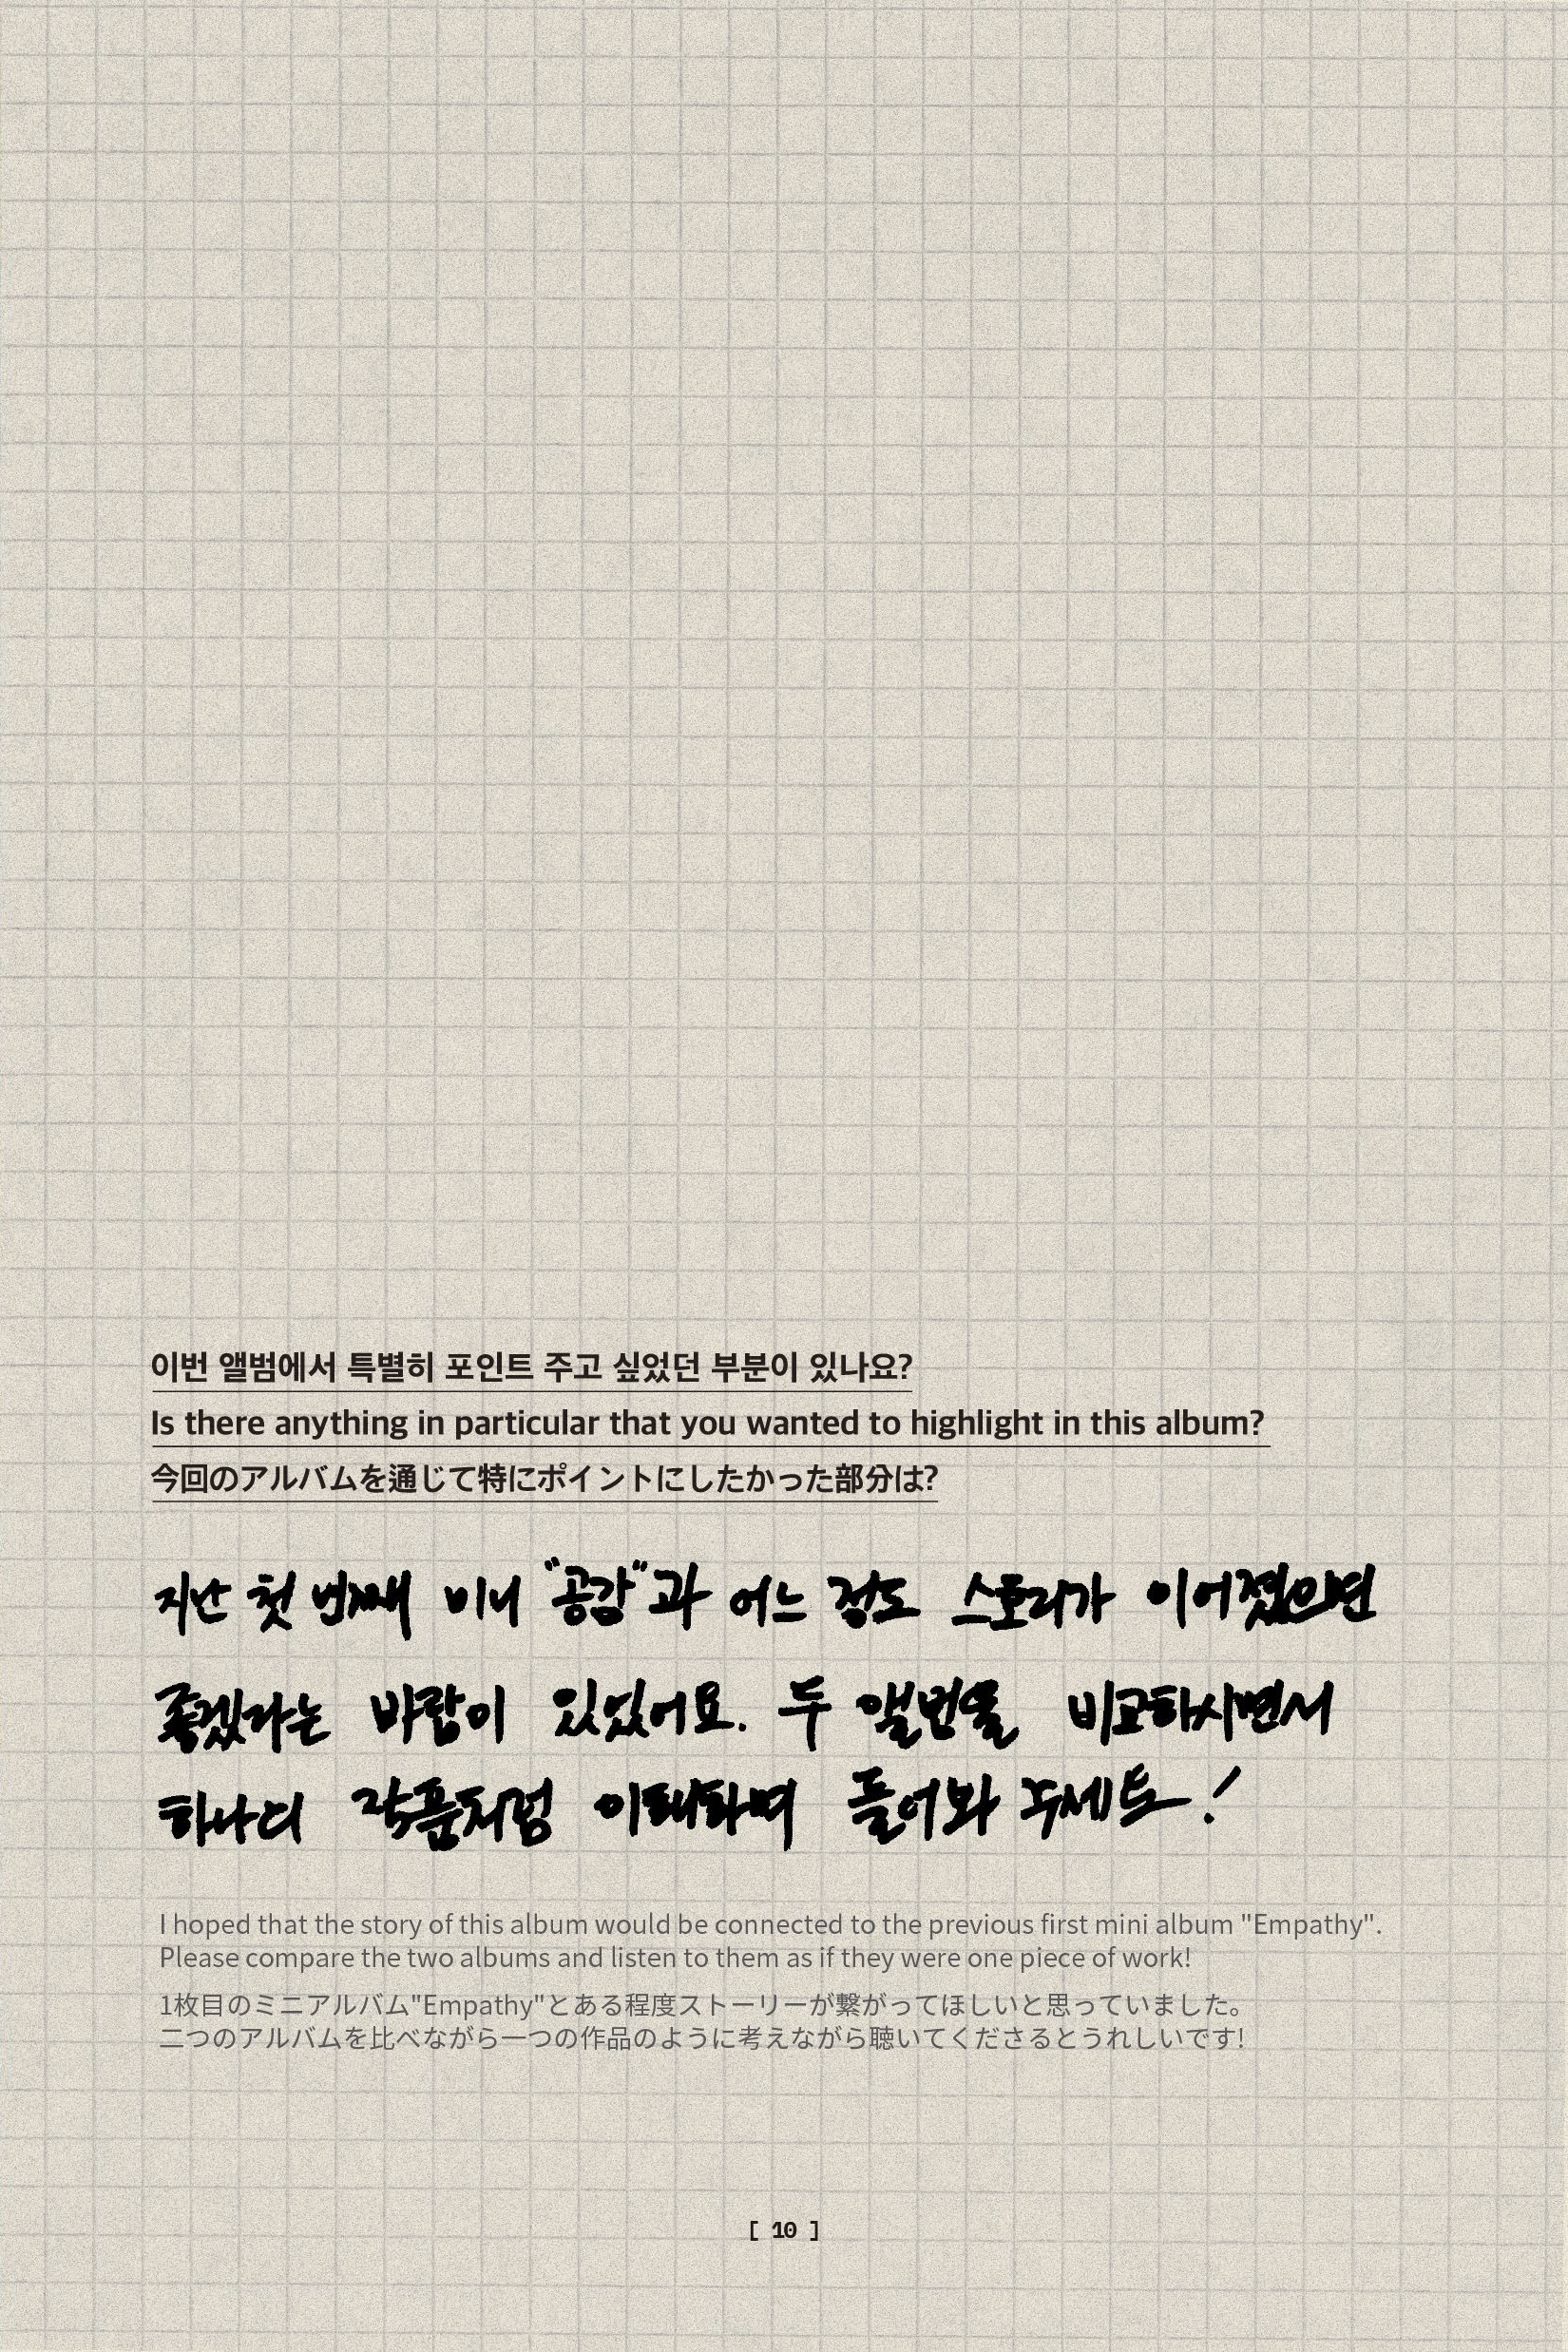 이번 앨범에서 특별히 포인트 주고 싶었던 부분이 있나요?
Is there anything in particular that you wanted to highlight in this album?
今回のアルバムを通じて特にポイントにしたかった部分は?
지난 첫 번째 미니 "공감"과 어느 정도 스토리가 이어졌으면
좋겠다는 바람이 있었어요. 두 앨범을 비교하시면서
하나의 작품처럼 이해하며 들어봐 주세요!
I hoped that the story of this album would be connected to the previous first mini album "Empathy".
Please compare the two albums and listen to them as if they were one piece of work!
1枚目のミニアルバム"Empathy"とある程度ストーリーが繋がってほしいと思っていました。
二つのアルバムを比べながら一つの作品のように考えながら聴いてくださるとうれしいです!
[ 10 ]